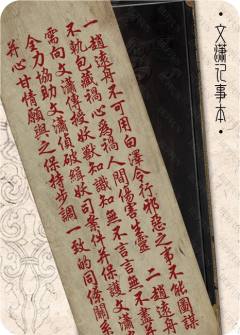 ·文瀟记事本·
一趙遠舟不可用白澤令行邪惡之事不能圖謀
不軌包藏禍心為禍人間傷害生靈 二趙遠舟
需向文瀟傳授妖獸知識知無不言言無不盡
全力協助文瀟偵破緝妖司案件并保護文瀟
并心甘情願與之保持步調一致的同僚關係